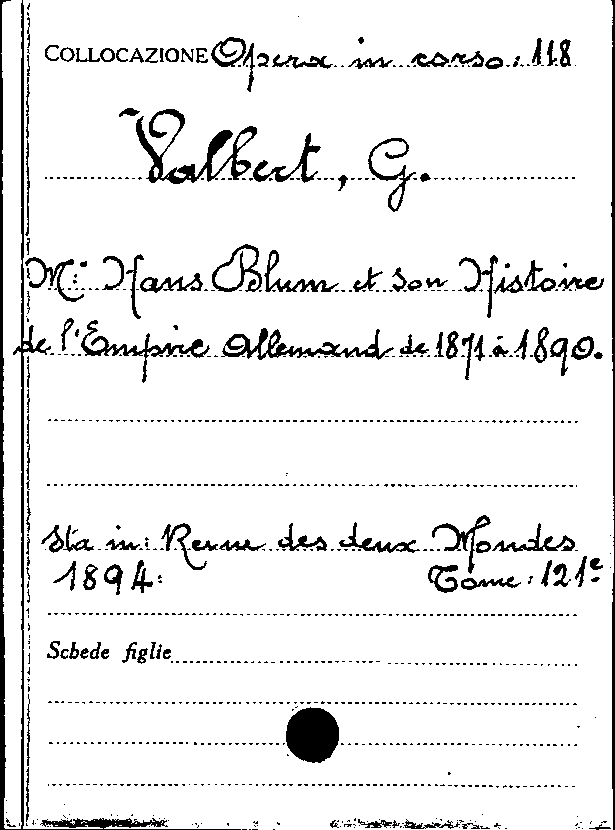 COLLOCAZIONE Opera in corso: 118
Valbert, G.
Mr Hans Blum et son Histoire
de l'Empire Allemand de 1871 à 1890.
Sta in: Revue des deux Mondes
1894: Tome: 121e
Schede figlie